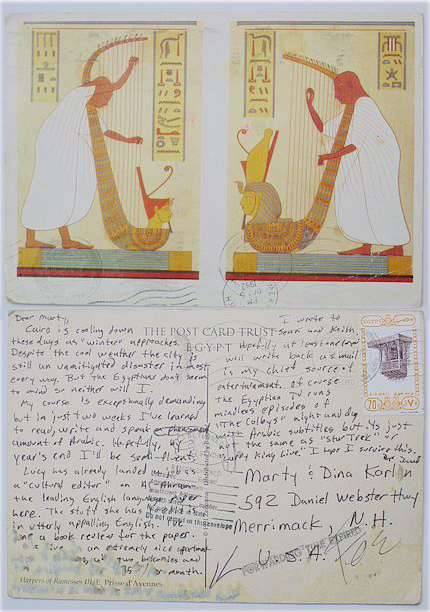 Dear Marty,
Cairo is cooling down
these days as "winter" approaches.
Despite the cool weather the city is
still an unmitigated disaster in most
every way. But the Egyptians don't seem
to mind so neither will I.
My course is exceptionally demanding
but in just two weeks I've learned
to read, write and speak a phenomenal
amount of Arabic. Hopefully, by
year's end I'll be semi-fluent.
Lucy has already landed
a "cultural editor" on Al
the leading English language
here. The stuff she has to edit is
in utterly appalling English. I've
done a book review for the paper.
We live in an extremely nice apartment
two balconies and
35 / month.
Harpers of Ramesses III, E. Prisse d'Avennes
THE POST CARD TRUST
EGYPT
I wrote to
Sean and Keith.
Hopefully at least one
will write back as mail
is my chief source of
entertainment. Of course
the Egyptian TV runs
mindless episodes of
"The Colbys" night and day
with Arabic subtitles but its just
not the same as "Star Trek" or
"Larry King Live." I hope I survive this.
David
EGYPT
70
Marty & Dina Karlin
592 Daniel Webster Hwy
Merrimack, N.H.
U.S.A.
Do not repeat in this envelope
FORWARDING TIME EXPIRED
1992